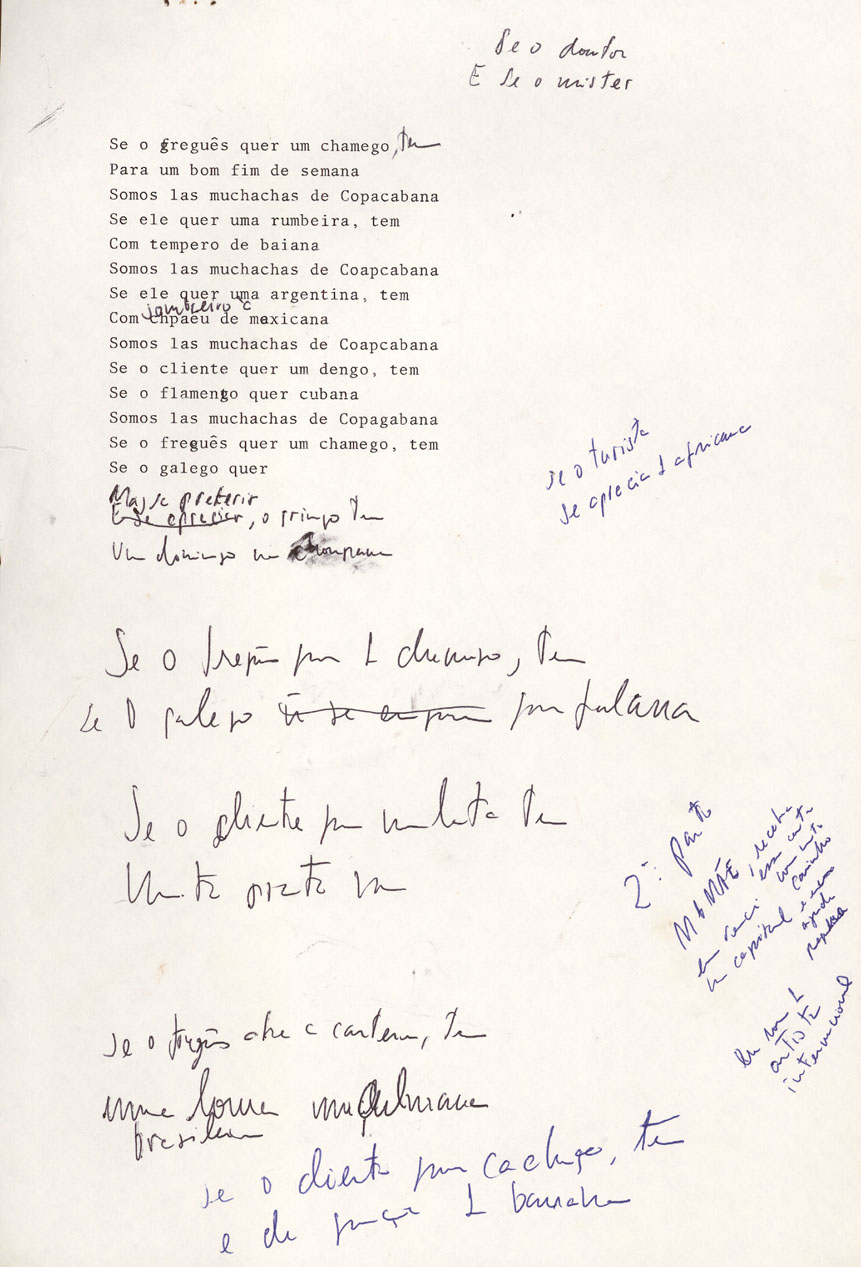 Se o doutor
E se o mister
Se o freguês quer um chamego, tem
Para um bom fim de semana
Somos las muchachas de Copacabana
Se ele quer uma rumbeira, tem
Com tempero de baiana
Somos las muchachas de Coapcabana
Se ele quer uma argentina, tem
sombreiro
Com chpaeu de mexicana
Somos las muchachas de Coapcabana
Se o cliente quer um dengo, tem
Se o flamengo quer cubana
Somos las muchachas de Copagabana
Se o freguês quer um chamego, tem
Se o galego quer
se o turista
se aprecia 1 africana
Mas se preferir
E se apreciar, o gringo tem
Um domingo na choupana
Se o freguês quer 1 chamego, tem
Se o galego quer fulana
Se o cliente quer mulata tem
Mta preta
2ª parte
MAMÃE, receba
essa carta
com mto
carinho
Eu venci
na capital e
ajuda
Eu sou 1
artista
internacional
se o freguês abre a carteira, tem
uma loura muçulmana
brasileira
se o cliente quer cachaça, tem
e de graça 1 banana